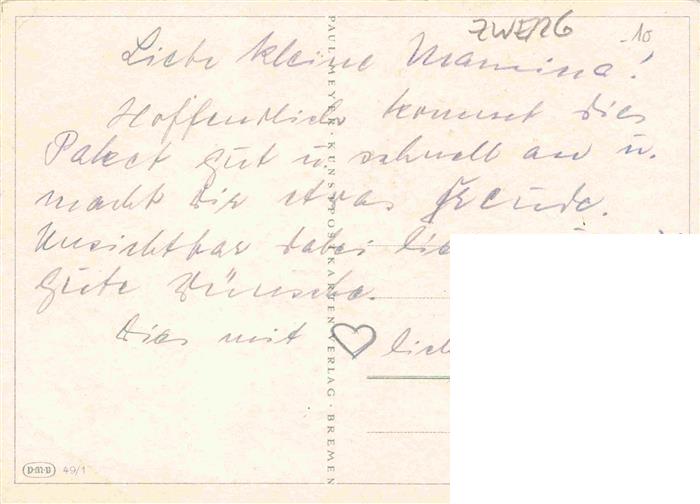 ZWERG
-10
Liebe kleine Mamina!
Hoffendlich kommt dies
Paket gut u. schnell an u.
macht Dir etwas Freude.
Unsichtbar dabei
Gute Wünsche.
Dies mit ♡ lich
PAUL MEYER · KUNSTPOSTKARTENVERLAG · BREMEN
p·m·b 49/1